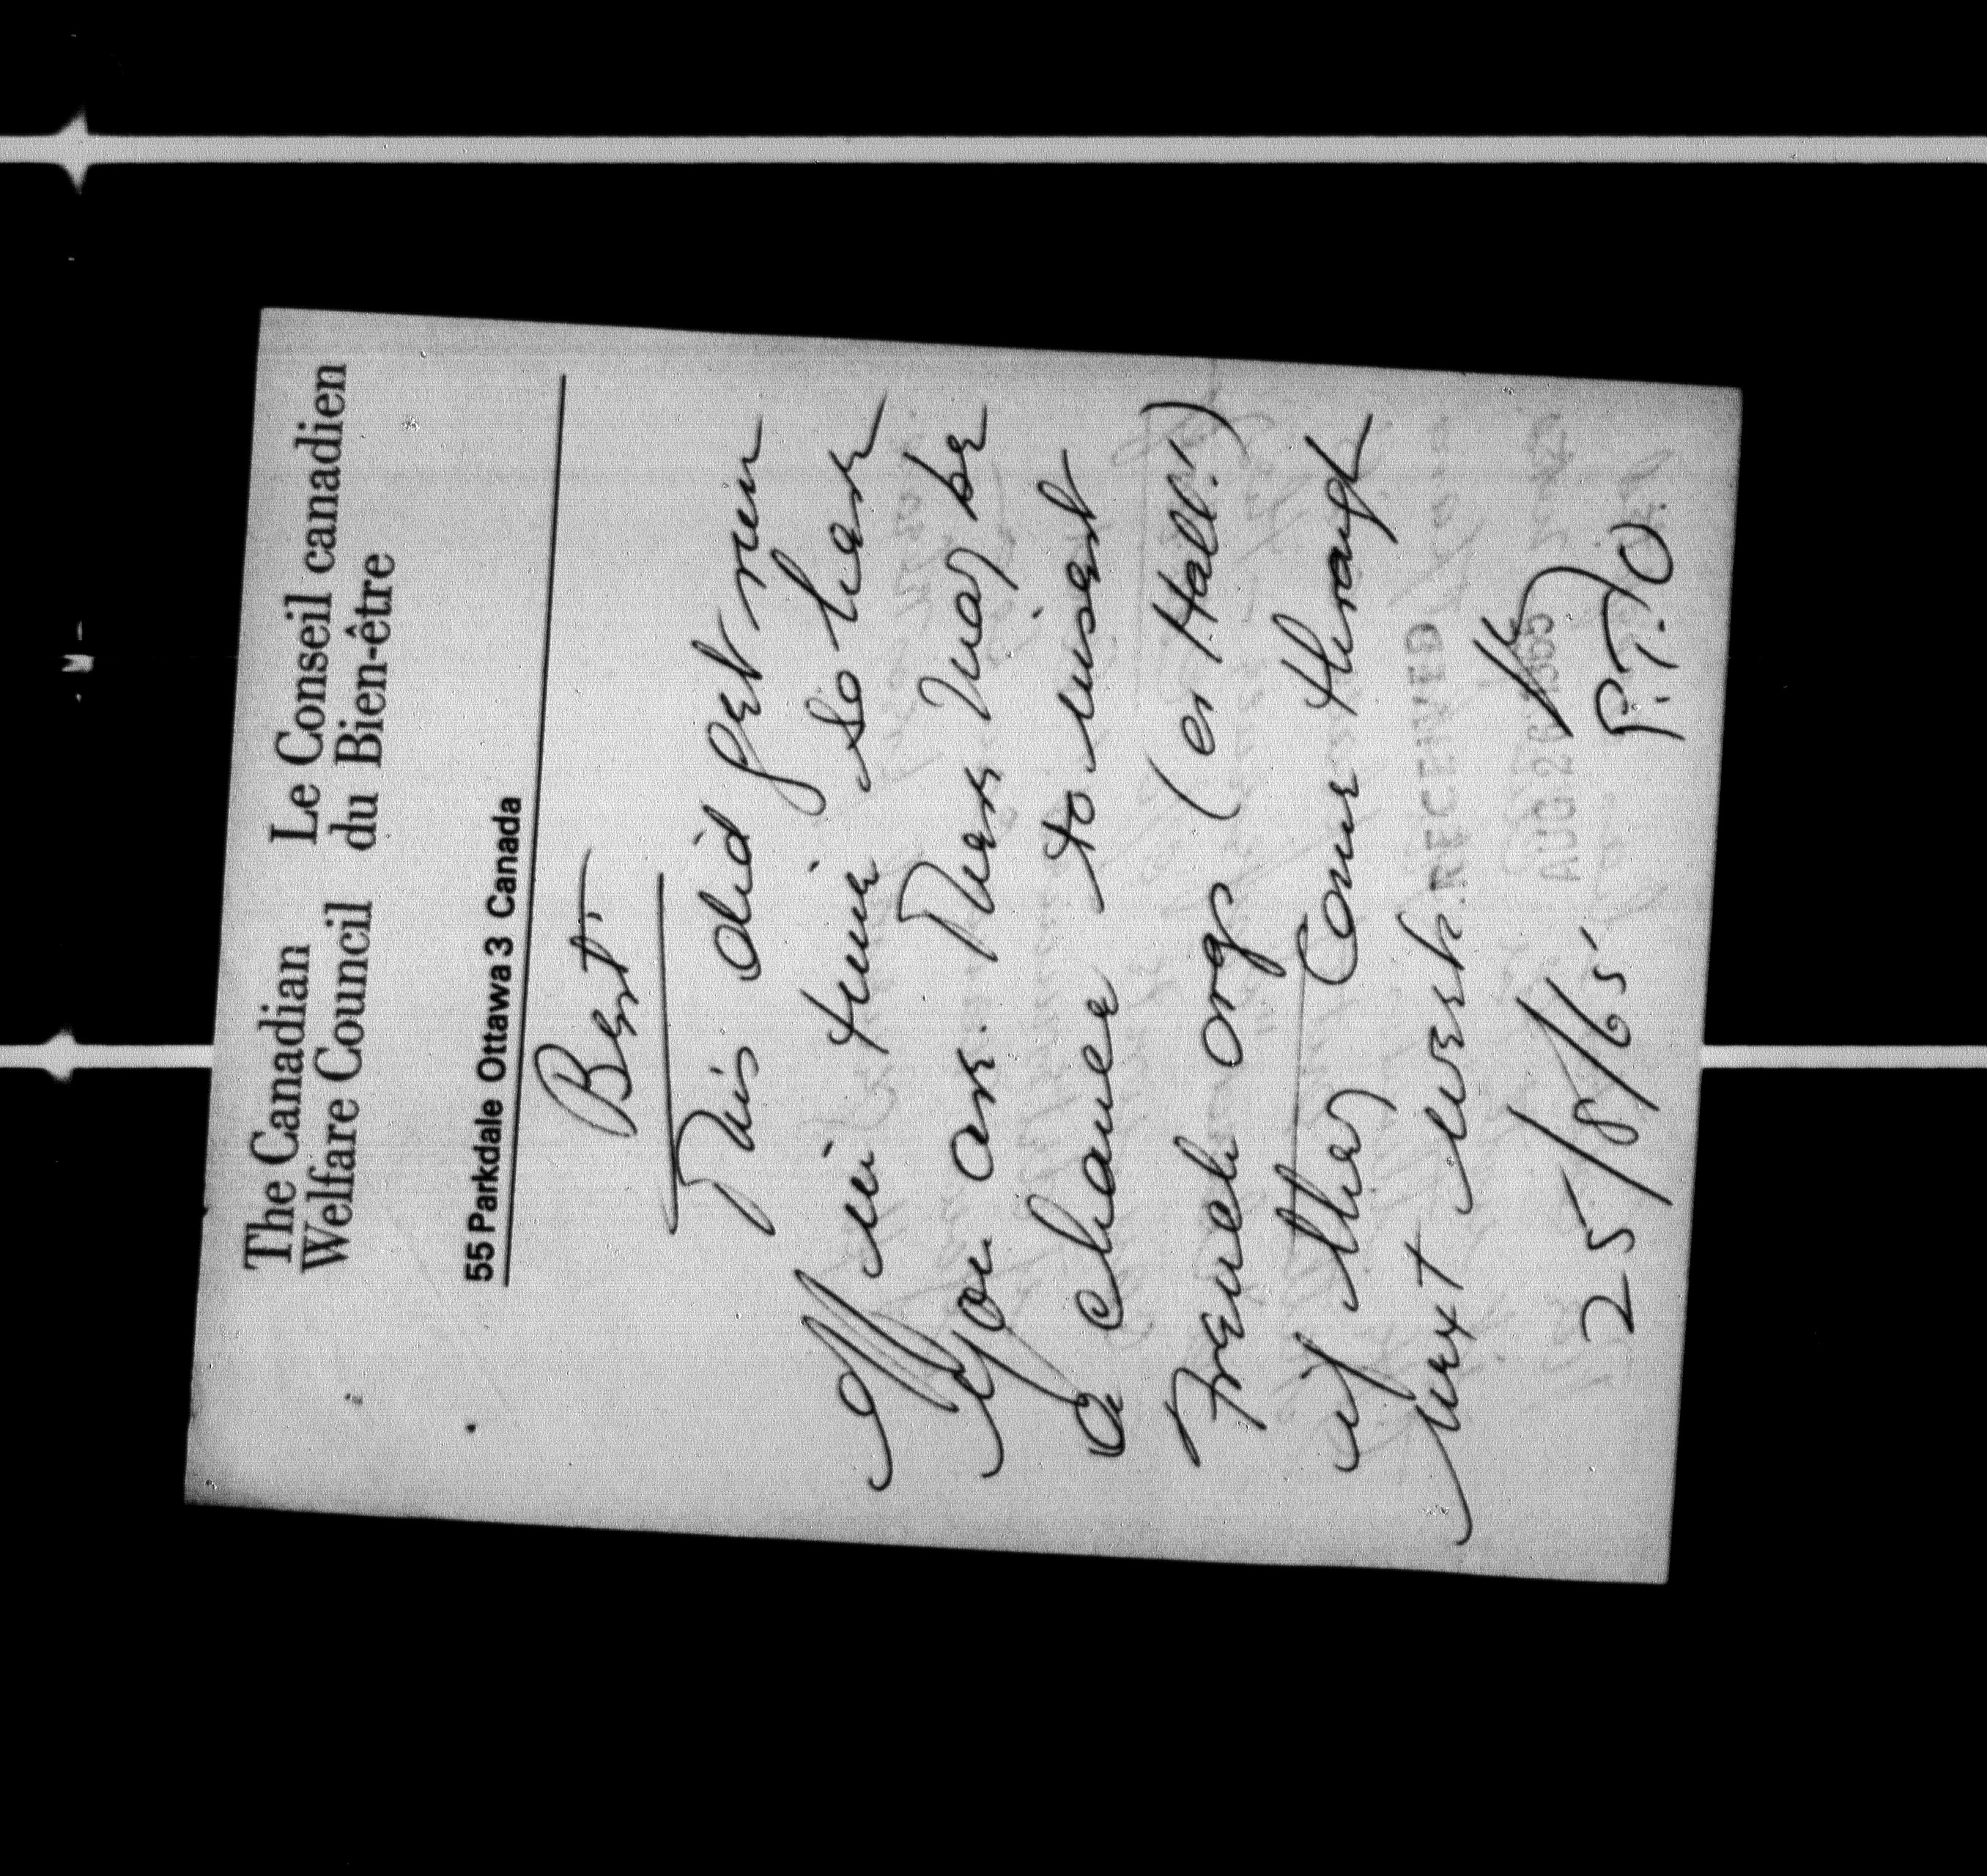 The Canadian Welfare Council
Le Conseil canadien du Bien-être
55 Parkdale Ottawa 3 Canada
Bert.
This did get run
off in time so here
you are. There may be
a chance to insert
French org (or Hall!)
if they come through
next week.
RECEIVED
AUG 26 1965
25/8/65
P.T.O